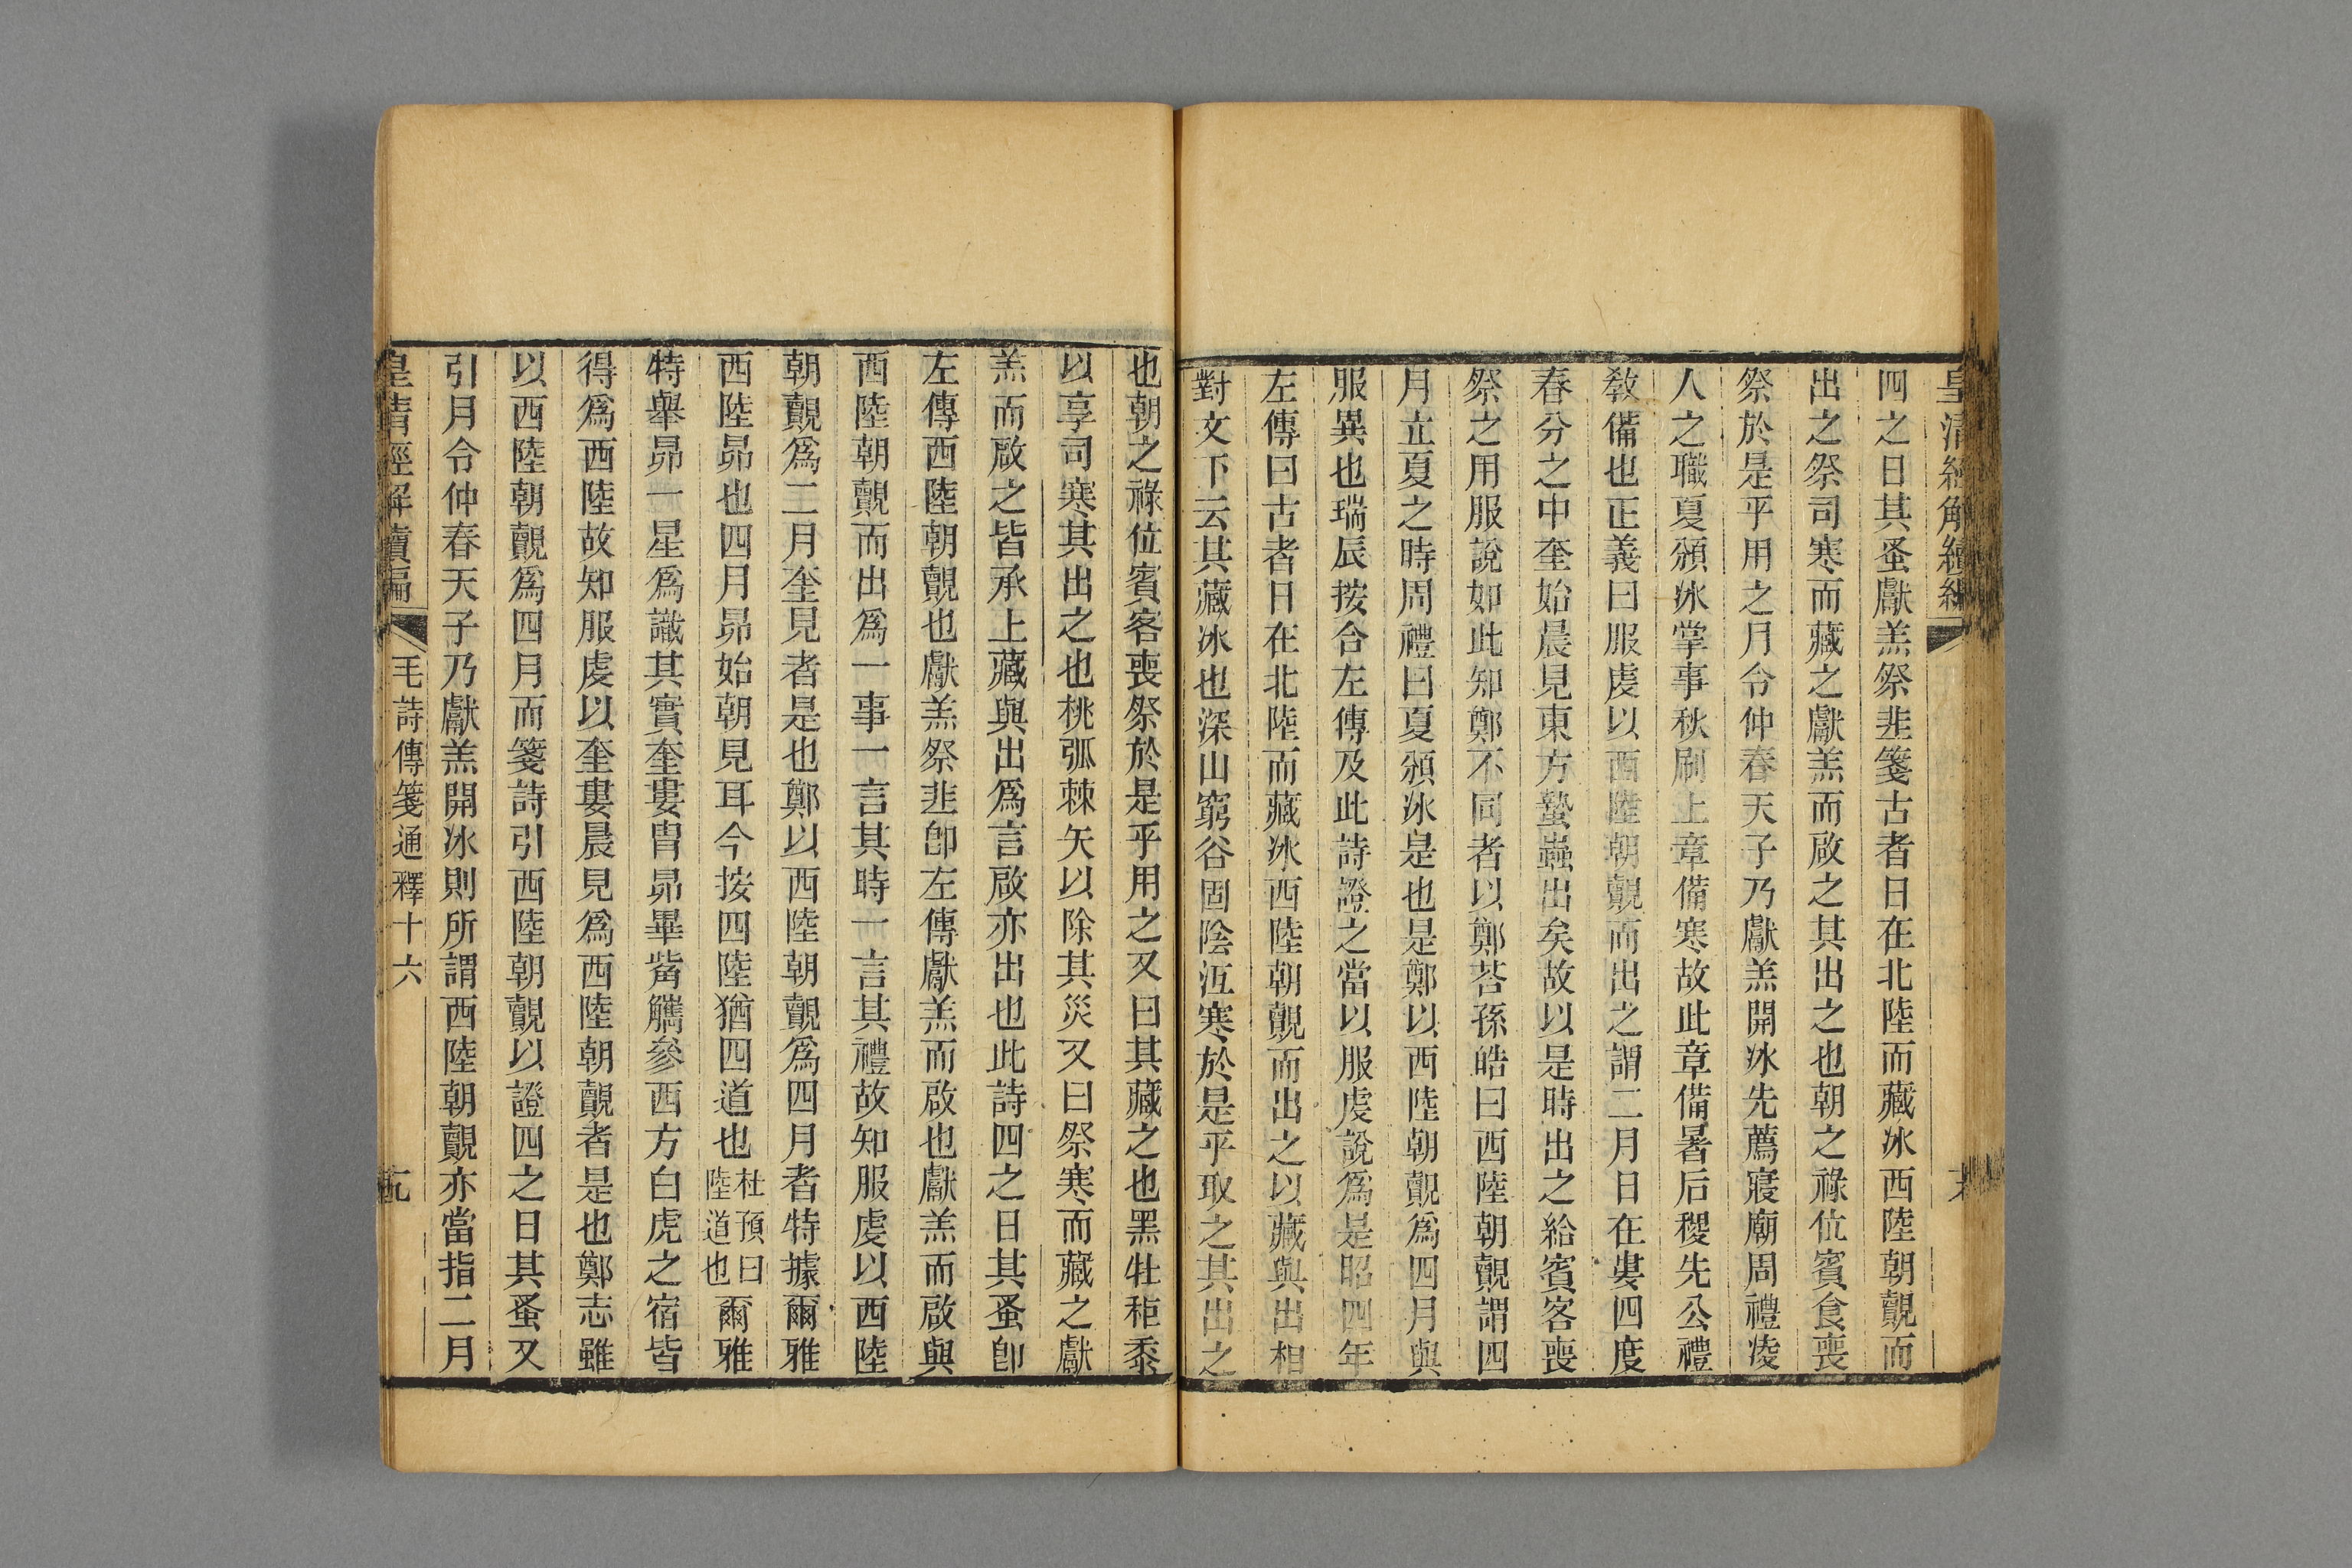 皇清經解續編
四之日其蚤獻羔祭韭箋古者日在北陸而藏冰西陸朝覿而
出之祭司寒而藏之獻羔而啟之其出之也朝之祿位賓食喪
祭於是乎用之月令仲春天子乃獻羔開冰先薦寢廟周禮凌
人之職夏頒冰掌事秋刷上章備寒故此章備暑后稷先公禮
敎備也正義曰服虔以西陸朝覿而出之謂二月日在婁四度
春分之中奎始晨見東方蟄蟲出矣故以是時出之給賓客喪
祭之用服說如此知鄭不同者以鄭荅孫皓曰西陸朝覿謂四
月立夏之時周禮曰夏頒冰是也是鄭以西陸朝覿爲四月與
服異也瑞辰按合左傳及此詩證之當以服虔說爲是昭四年
左傳曰古者日在北陸而藏冰西陸朝覿而出之以藏與出相
對文下云其藏冰也深山窮谷固陰沍寒於是乎取之其出之
也朝之祿位賓客喪祭於是乎用之又曰其藏之也黑牡秬黍
以享司寒其出之也桃弧棘矢以除其災又曰祭寒而藏之獻
羔而啟之皆承上藏與出爲言啟亦出也此詩四之日其蚤卽
左傳西陸朝覿也獻羔祭韭卽左傳獻羔而啟也獻羔而啟與
西陸朝覿而出爲一事一言其時一言其禮故知服虔以西陸
朝覿爲二月奎見者是也鄭以西陸朝覿爲四月者特據爾雅
西陸昴也四月昴始朝見耳今按四陸猶四道也杜預曰陸道也爾雅
特舉昴一星爲識其實奎婁胃昴畢觜觿參西方白虎之宿皆
得爲西陸故知服虔以奎婁晨見爲西陸朝覿者是也鄭志雖
以西陸朝覿爲四月而箋詩引西陸朝覿以證四之日其蚤又
引月令仲春天子乃獻羔開冰則所謂西陸朝覿亦當指二月
皇清經解續編 毛詩傳箋通釋十六